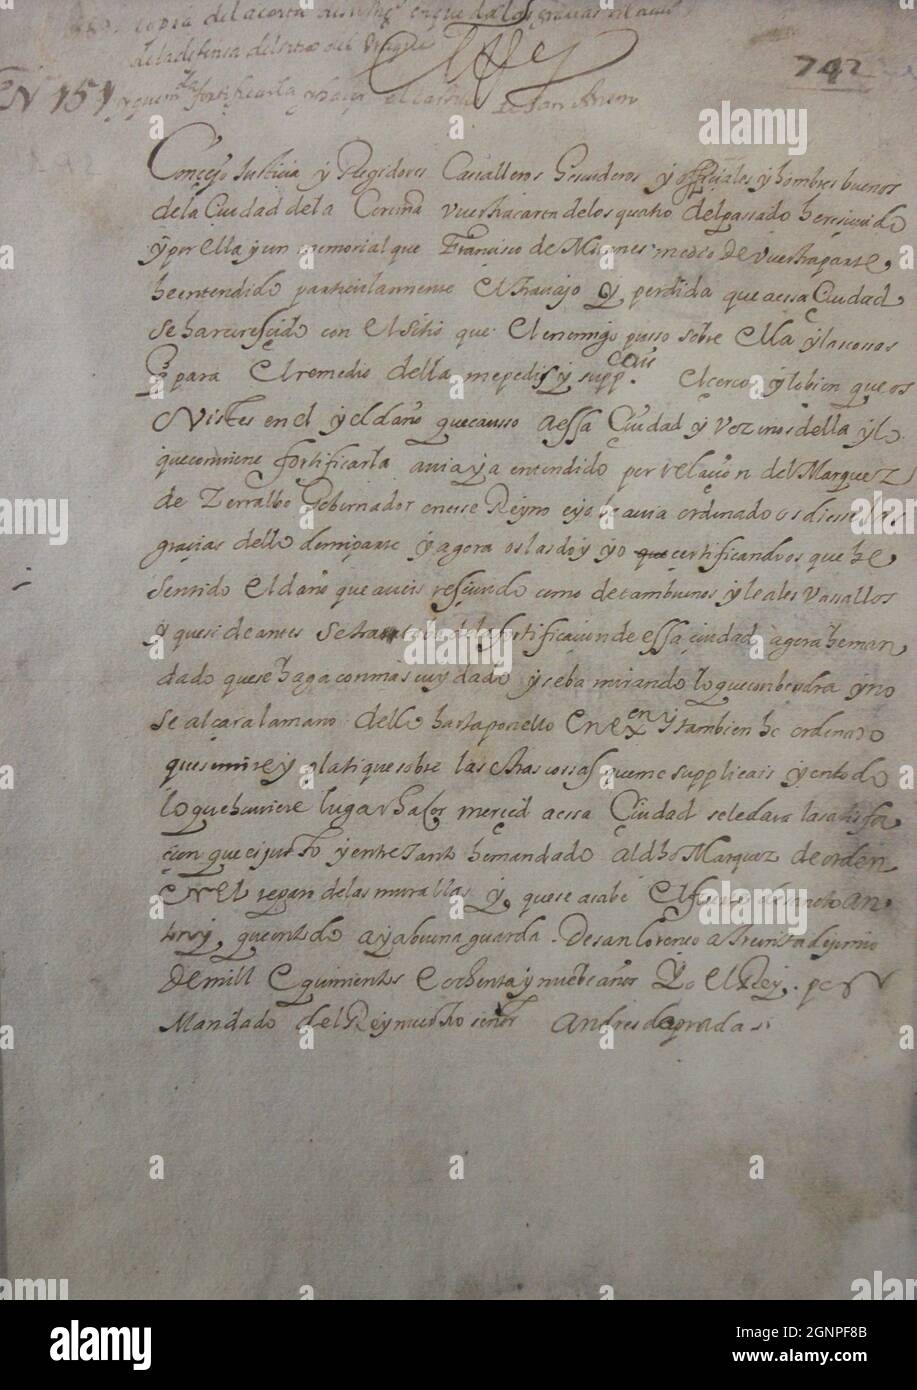 copia de la carta de su magd en que da las gracias
de la defensa del sitio del Draque
El Rey
742
N 151 y que manda fortificarla y hazer el castillo de san Anton
Concejo Justicia y Regidores Cavalleros Escuderos y offiçiales y hombres buenos
de la Ciudad de la Coruña vuestra carta de los quatro del passado he resçiuido
y por ella y un memorial que Françisco de Miones medio de vuestra parte,
he entendido particularmente el travajo y perdida que a essa Ciudad
se ha recresçido con el sitio que el enemigo puso sobre ella y las cossas
q para el remedio della me pedis y suppcais el cerco, y lo bien que os
vistes en el y el daño que causso a essa Çiudad y vezinos della y lo
que conviene fortificarla avia ya entendido por relaçion del Marquez
de Zerralbo Gobernador en esse Reyno e yo le avia ordenado os diesse las
gracias dello de mi parte y agora os las doy yo que certificandoos que he
sentido el daño que aueis resçiuido como de tan buenos y leales Vasallos
y que si de antes se tratava de la fortificaçion de essa çiudad agora he man
dado que se haga con mas cuydado y se ba mirando lo que conbendra y no
se alçara la mano dello hasta ponello en exen y tambien he ordenado
que se mire y platique sobre las otras cossas que me supplicais y en todo
lo que huviere lugar haçer merçed a essa Çiudad se le dara la satisfa
çion que es justo y entre tanto he mandado al dho Marquez de orden
en el reparo de las murallas y que se acabe el fuerte de sancto An
ton y que en todo aya buena guarda. De san Lorenço a treinta de junio
de mill e quinientos e ochenta y nuebe años Yo el Rey. por
Mandado del Rey nuestro señor Andres de prada
alamy
Image ID: 2GNPF8B
www.alamy.com